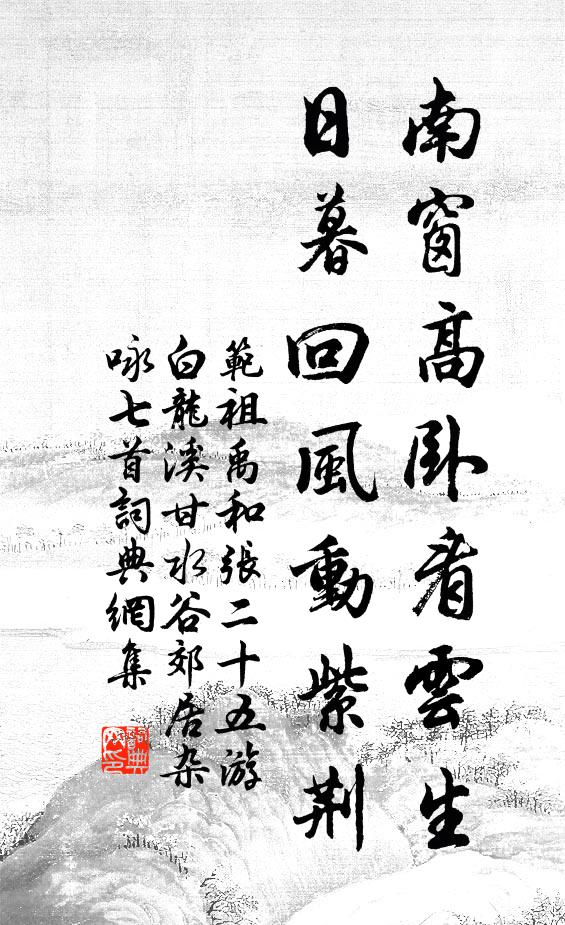 南窗高卧看雲生
日暮回風動紫荆
範祖禹和張二十五游
白龍溪甘水谷郊居杂
咏七首詞典網集